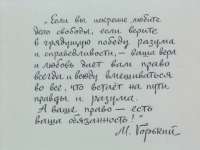 „Если вы искренне любите
дело свободы, если верите
в грядущую победу разума
и справедливости, — ваша вера
и любовь дает вам право
всегда и всюду вмешиваться
во все, что встает на пути
правды и разума.
А ваше право — есть
ваша обязанность!"
М. Горький